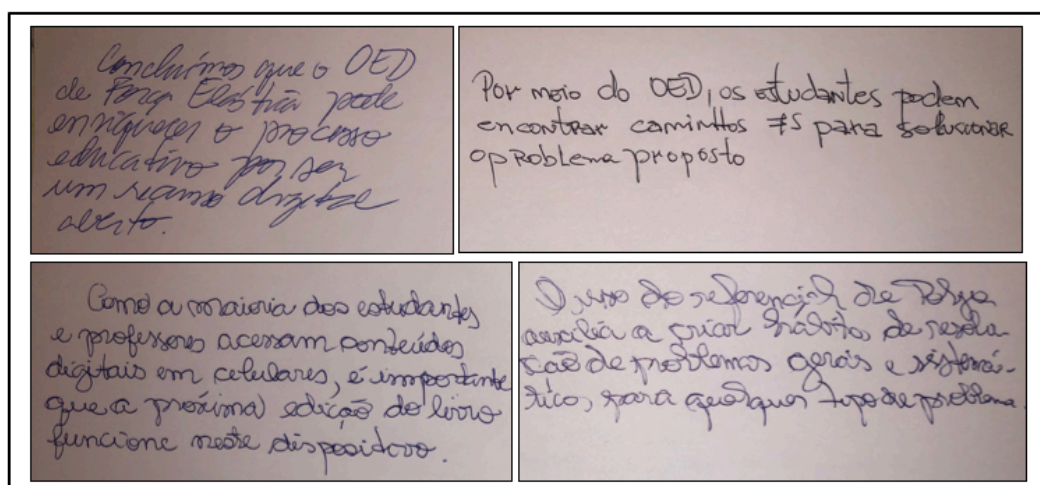 Concluímos que o OED
de Força Elástica pode
enriquecer o processo
educativo por ser
um recurso digital
aberto.
Por meio do OED, os estudantes podem
encontrar caminhos ≠s para solucionar
o problema proposto
Como a maioria dos estudantes
e professores acessam conteúdos
digitais em celulares, é importante
que a próxima edição do livro
funcione neste dispositivo.
O uso do referencial de Polya
auxilia a criar hábitos de resolu-
ção de problemas gerais e sistemá-
ticos, para qualquer tipo de problema.